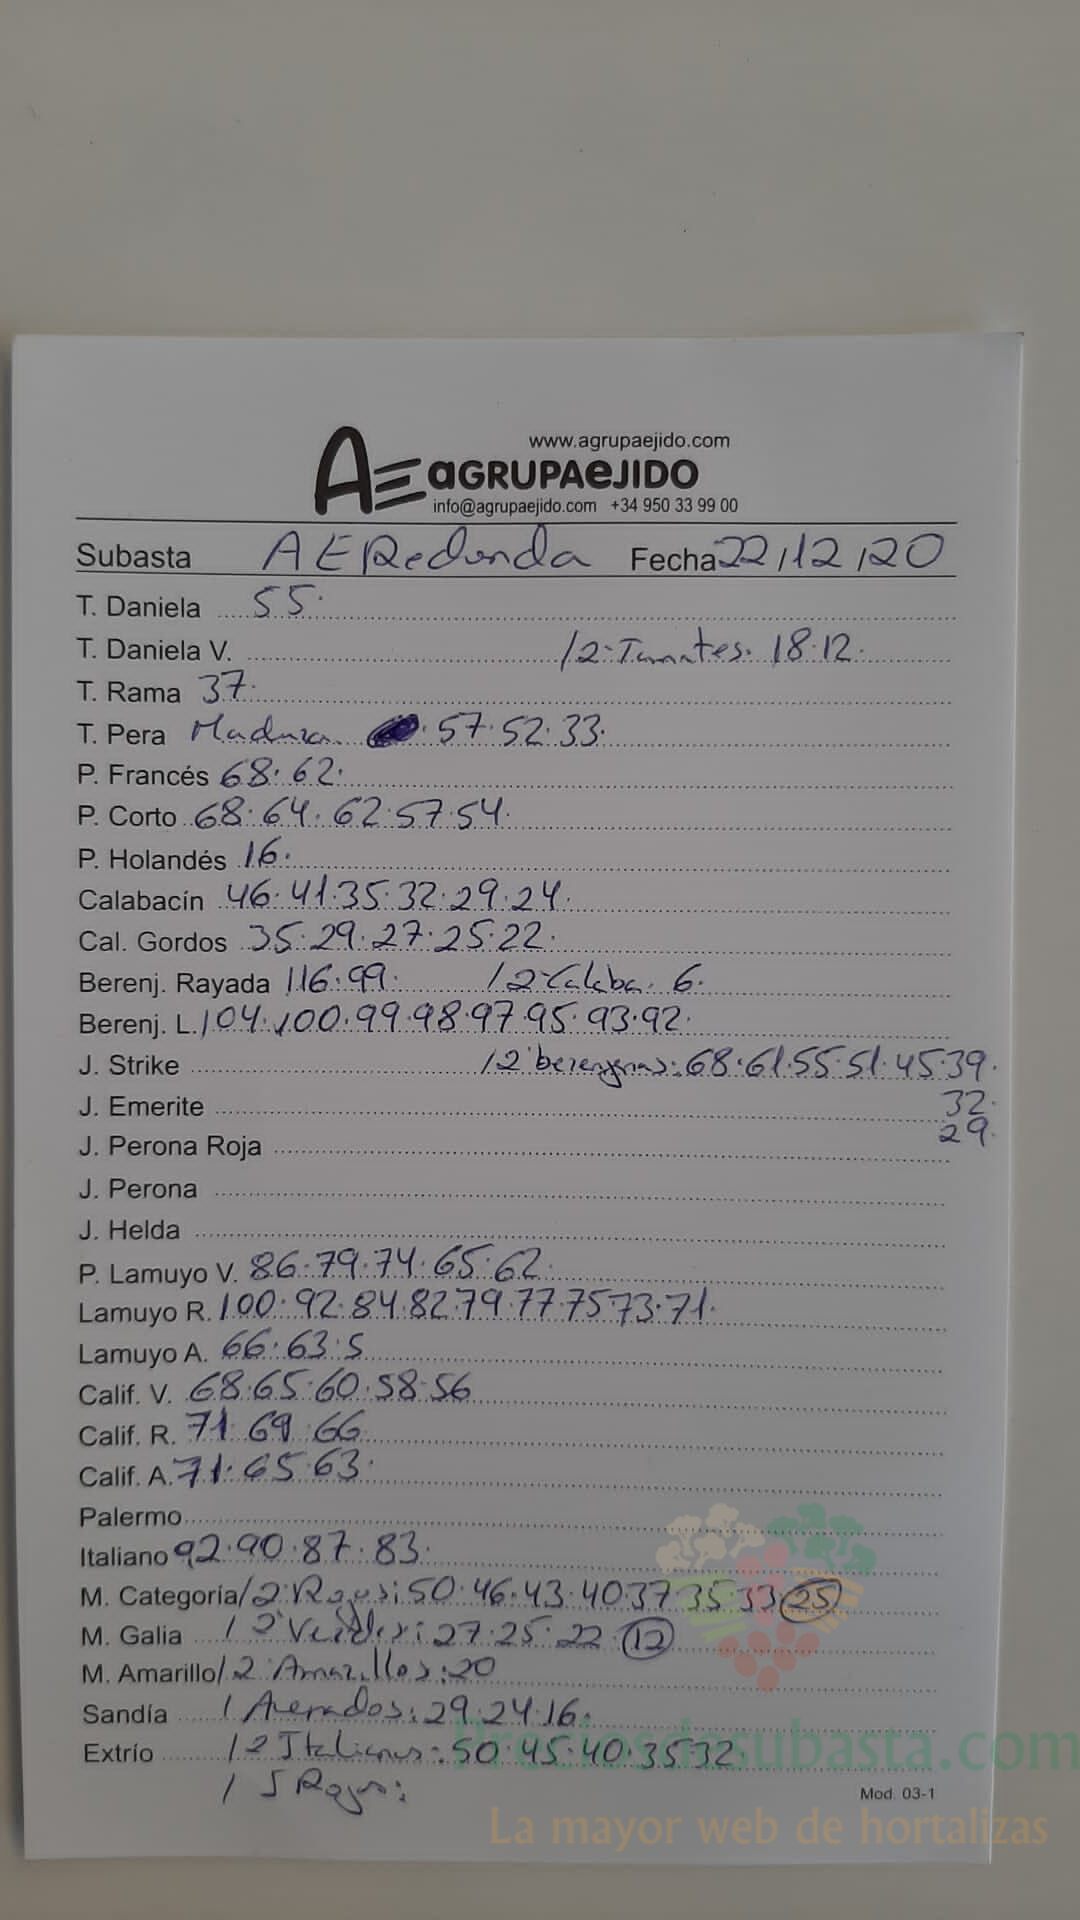 www.agrupaejido.com
AE aGRUPAeJIDO
info@agrupaejido.com +34 950 33 99 00
Subasta AERedonda Fecha 22/12/20
T. Daniela 55.
T. Daniela V. /2ª Tomates. 18.12.
T. Rama 37.
T. Pera Madura . 57.52.33.
P. Francés 68.62.
P. Corto 68.64.62.57.54.
P. Holandés 16.
Calabacín 46.41.35.32.29.24.
Cal. Gordos 35.29.27.25.22.
Berenj. Rayada 116.99. /2ª Calaba. 6.
Berenj. L. 104.100.99.98.97.95.93.92.
J. Strike /2ª berengenas: 68.61.55.51.45.39.
J. Emerite 32.
29.
J. Perona Roja
J. Perona
J. Helda
P. Lamuyo V. 86.79.74.65.62.
Lamuyo R. 100.92.84.82.79.77.75.73.71.
Lamuyo A. 66.63.5
Calif. V. 68.65.60.58.56
Calif. R. 71.69.66
Calif. A. 71.65.63.
Palermo
Italiano 92.90.87.83.
M. Categoría /2ª Rojos: 50.46.43.40.37.35.33. 25
M. Galia /2ª Verdes: 27.25.22. 12
M. Amarillo /2ª Amarillos: 20
Sandía / Asurados: 29.24.16.
Extrío /2ª Italianos: 50.45.40.35.32
/ 5 Rojos:
Preciosdesubasta.com
Mod. 03-1
La mayor web de hortalizas